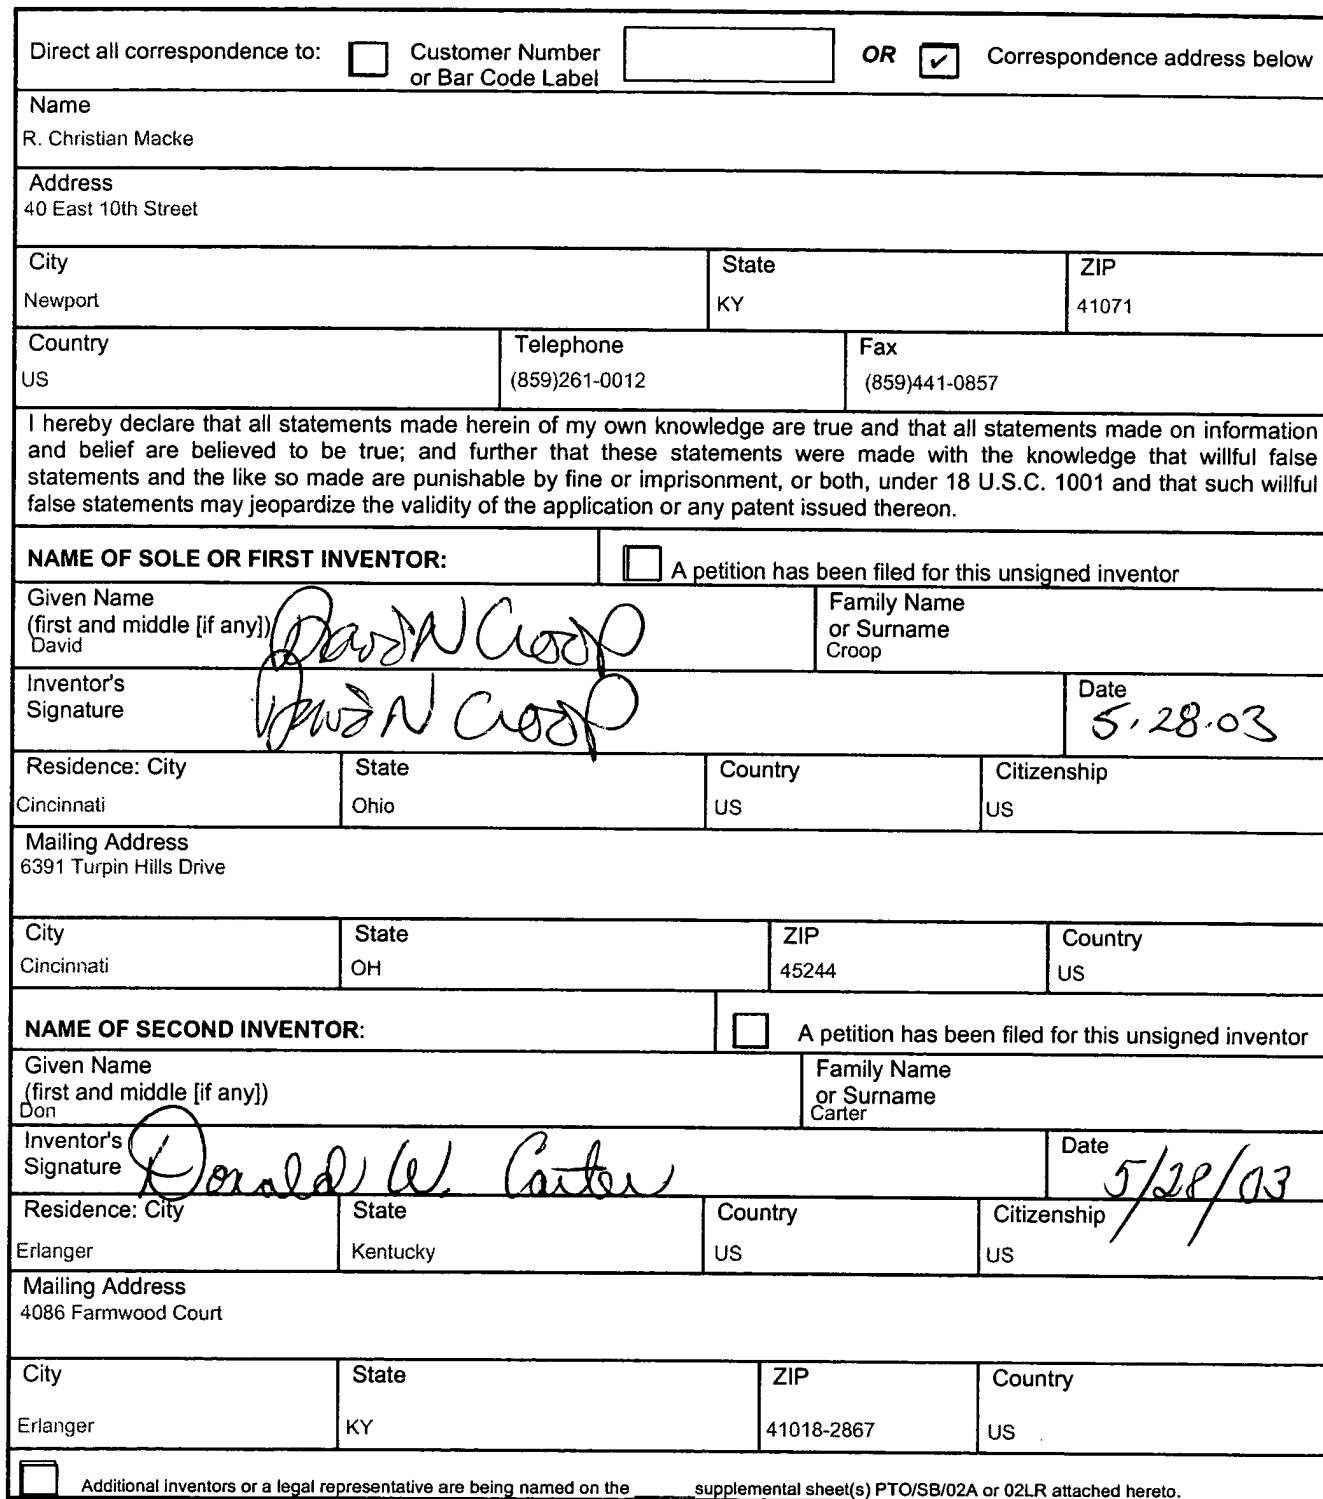 Direct all correspondence to: Customer Number or Bar Code Label OR ✓ Correspondence address below
Name
R. Christian Macke
Address
40 East 10th Street
City State ZIP
Newport KY 41071
Country Telephone Fax
US (859)261-0012 (859)441-0857
I hereby declare that all statements made herein of my own knowledge are true and that all statements made on information
and belief are believed to be true; and further that these statements were made with the knowledge that willful false
statements and the like so made are punishable by fine or imprisonment, or both, under 18 U.S.C. 1001 and that such willful
false statements may jeopardize the validity of the application or any patent issued thereon.
NAME OF SOLE OR FIRST INVENTOR: A petition has been filed for this unsigned inventor
Given Name Family Name
(first and middle [if any]) or Surname
David David N Croop Croop
Inventor's Date
Signature David N Croop 5.28.03
Residence: City State Country Citizenship
Cincinnati Ohio US US
Mailing Address
6391 Turpin Hills Drive
City State ZIP Country
Cincinnati OH 45244 US
NAME OF SECOND INVENTOR: A petition has been filed for this unsigned inventor
Given Name Family Name
(first and middle [if any]) or Surname
Don Carter
Inventor's Date
Signature Donald W. Carter 5/28/03
Residence: City State Country Citizenship
Erlanger Kentucky US US
Mailing Address
4086 Farmwood Court
City State ZIP Country
Erlanger KY 41018-2867 US
Additional inventors or a legal representative are being named on the ______ supplemental sheet(s) PTO/SB/02A or 02LR attached hereto.